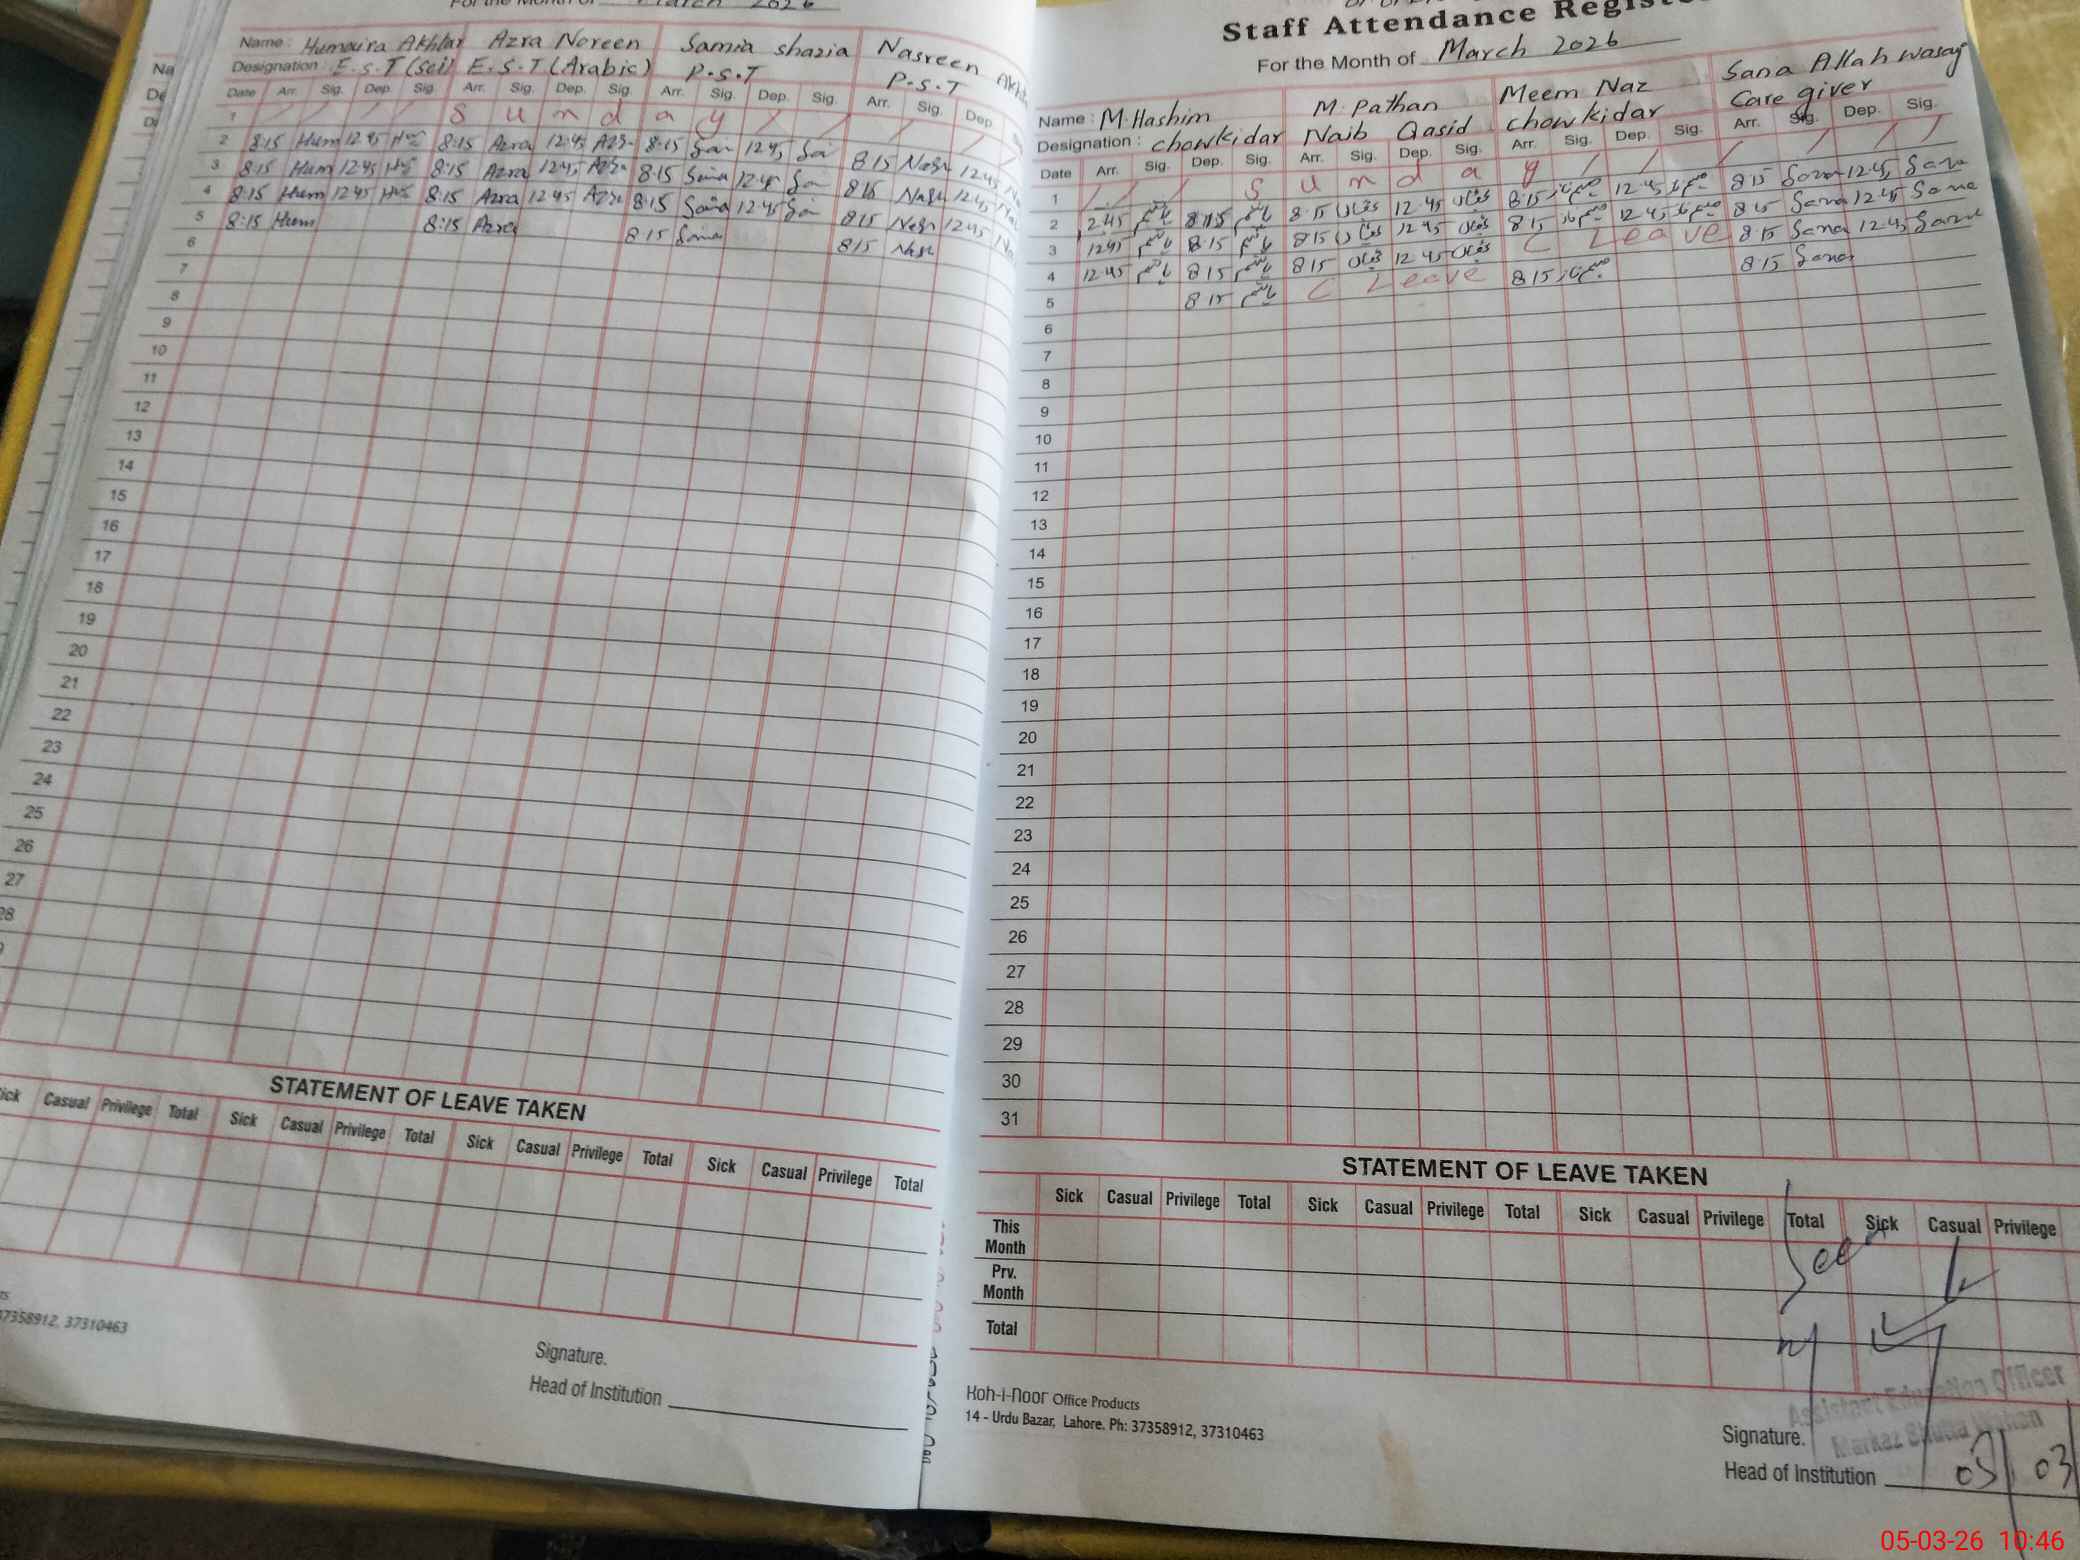 For the Month of March 2026
Name: Humaira Akhtar Azra Noreen Samia shazia Nasreen Akh
Designation: E.S.T (Sci) E.S.T (Arabic) P.S.T P.S.T
Date Arr. Sig. Dep. Sig. Arr. Sig. Dep. Sig. Arr. Sig. Dep. Sig. Arr. Sig. Dep.
1 / / / / S u n d a y / / / / /
2 8:15 Hum 12:45 8:15 Azra 12:45 Azra 8:15 12:45 8:15 Nasr 12:45
3 8:15 Hum 12:45 8:15 Azra 12:45 Azra 8:15 12:45 8:15 Nasr 12:45
4 8:15 Hum 12:45 8:15 Azra 12:45 Azra 8:15 12:45 8:15 Nasr 12:45
5 8:15 Hum 8:15 Azra 8:15 8:15 Nasr
6
7
8
9
10
11
12
13
14
15
16
17
18
19
20
21
22
23
24
25
26
27
28
STATEMENT OF LEAVE TAKEN
Sick Casual Privilege Total Sick Casual Privilege Total Sick Casual Privilege Total Sick Casual Privilege Total
37358912, 37310463
Signature.
Head of Institution
Staff Attendance Register
For the Month of March 2026
Name: M.Hashim M. Pathan Meem Naz Sana Allah wasay
Designation: chowkidar Naib Qasid chowkidar Care giver
Date Arr. Sig. Dep. Sig. Arr. Sig. Dep. Sig. Arr. Sig. Dep. Sig. Arr. Sig. Dep. Sig.
1 / / S u n d a y / / / / / /
2 2:45 ہاشم 8:15 ہاشم 8:15 12:45 8:15 12:45 8:15 Sana 12:45 Sana
3 12:45 ہاشم 8:15 ہاشم 8:15 12:45 8:15 12:45 8:15 Sana 12:45 Sana
4 12:45 ہاشم 8:15 ہاشم 8:15 12:45 C Leave 8:15 Sana 12:45 Sana
5 8:15 ہاشم C Leave 8:15 8:15 Sana
6
7
8
9
10
11
12
13
14
15
16
17
18
19
20
21
22
23
24
25
26
27
28
29
30
31
STATEMENT OF LEAVE TAKEN
Sick Casual Privilege Total Sick Casual Privilege Total Sick Casual Privilege Total Sick Casual Privilege
This Month
Prv. Month
Total
Seen
Koh-i-noor Office Products
14 - Urdu Bazar, Lahore. Ph: 37358912, 37310463
Assistant Education Officer
Markaz
Signature.
Head of Institution
05/03
05-03-26 10:46